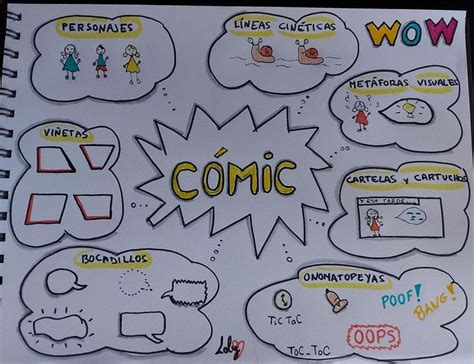 PERSONAJES
LÍNEAS CINÉTICAS
WOW
METÁFORAS VISUALES
VIÑETAS
CÓMIC
CARTELAS y CARTUCHOS
Y ESA TARDE...
BOCADILLOS
ONOMATOPEYAS
TIC TOC
POOF!
BANG!
TOC_TOC
OOPS
Loly